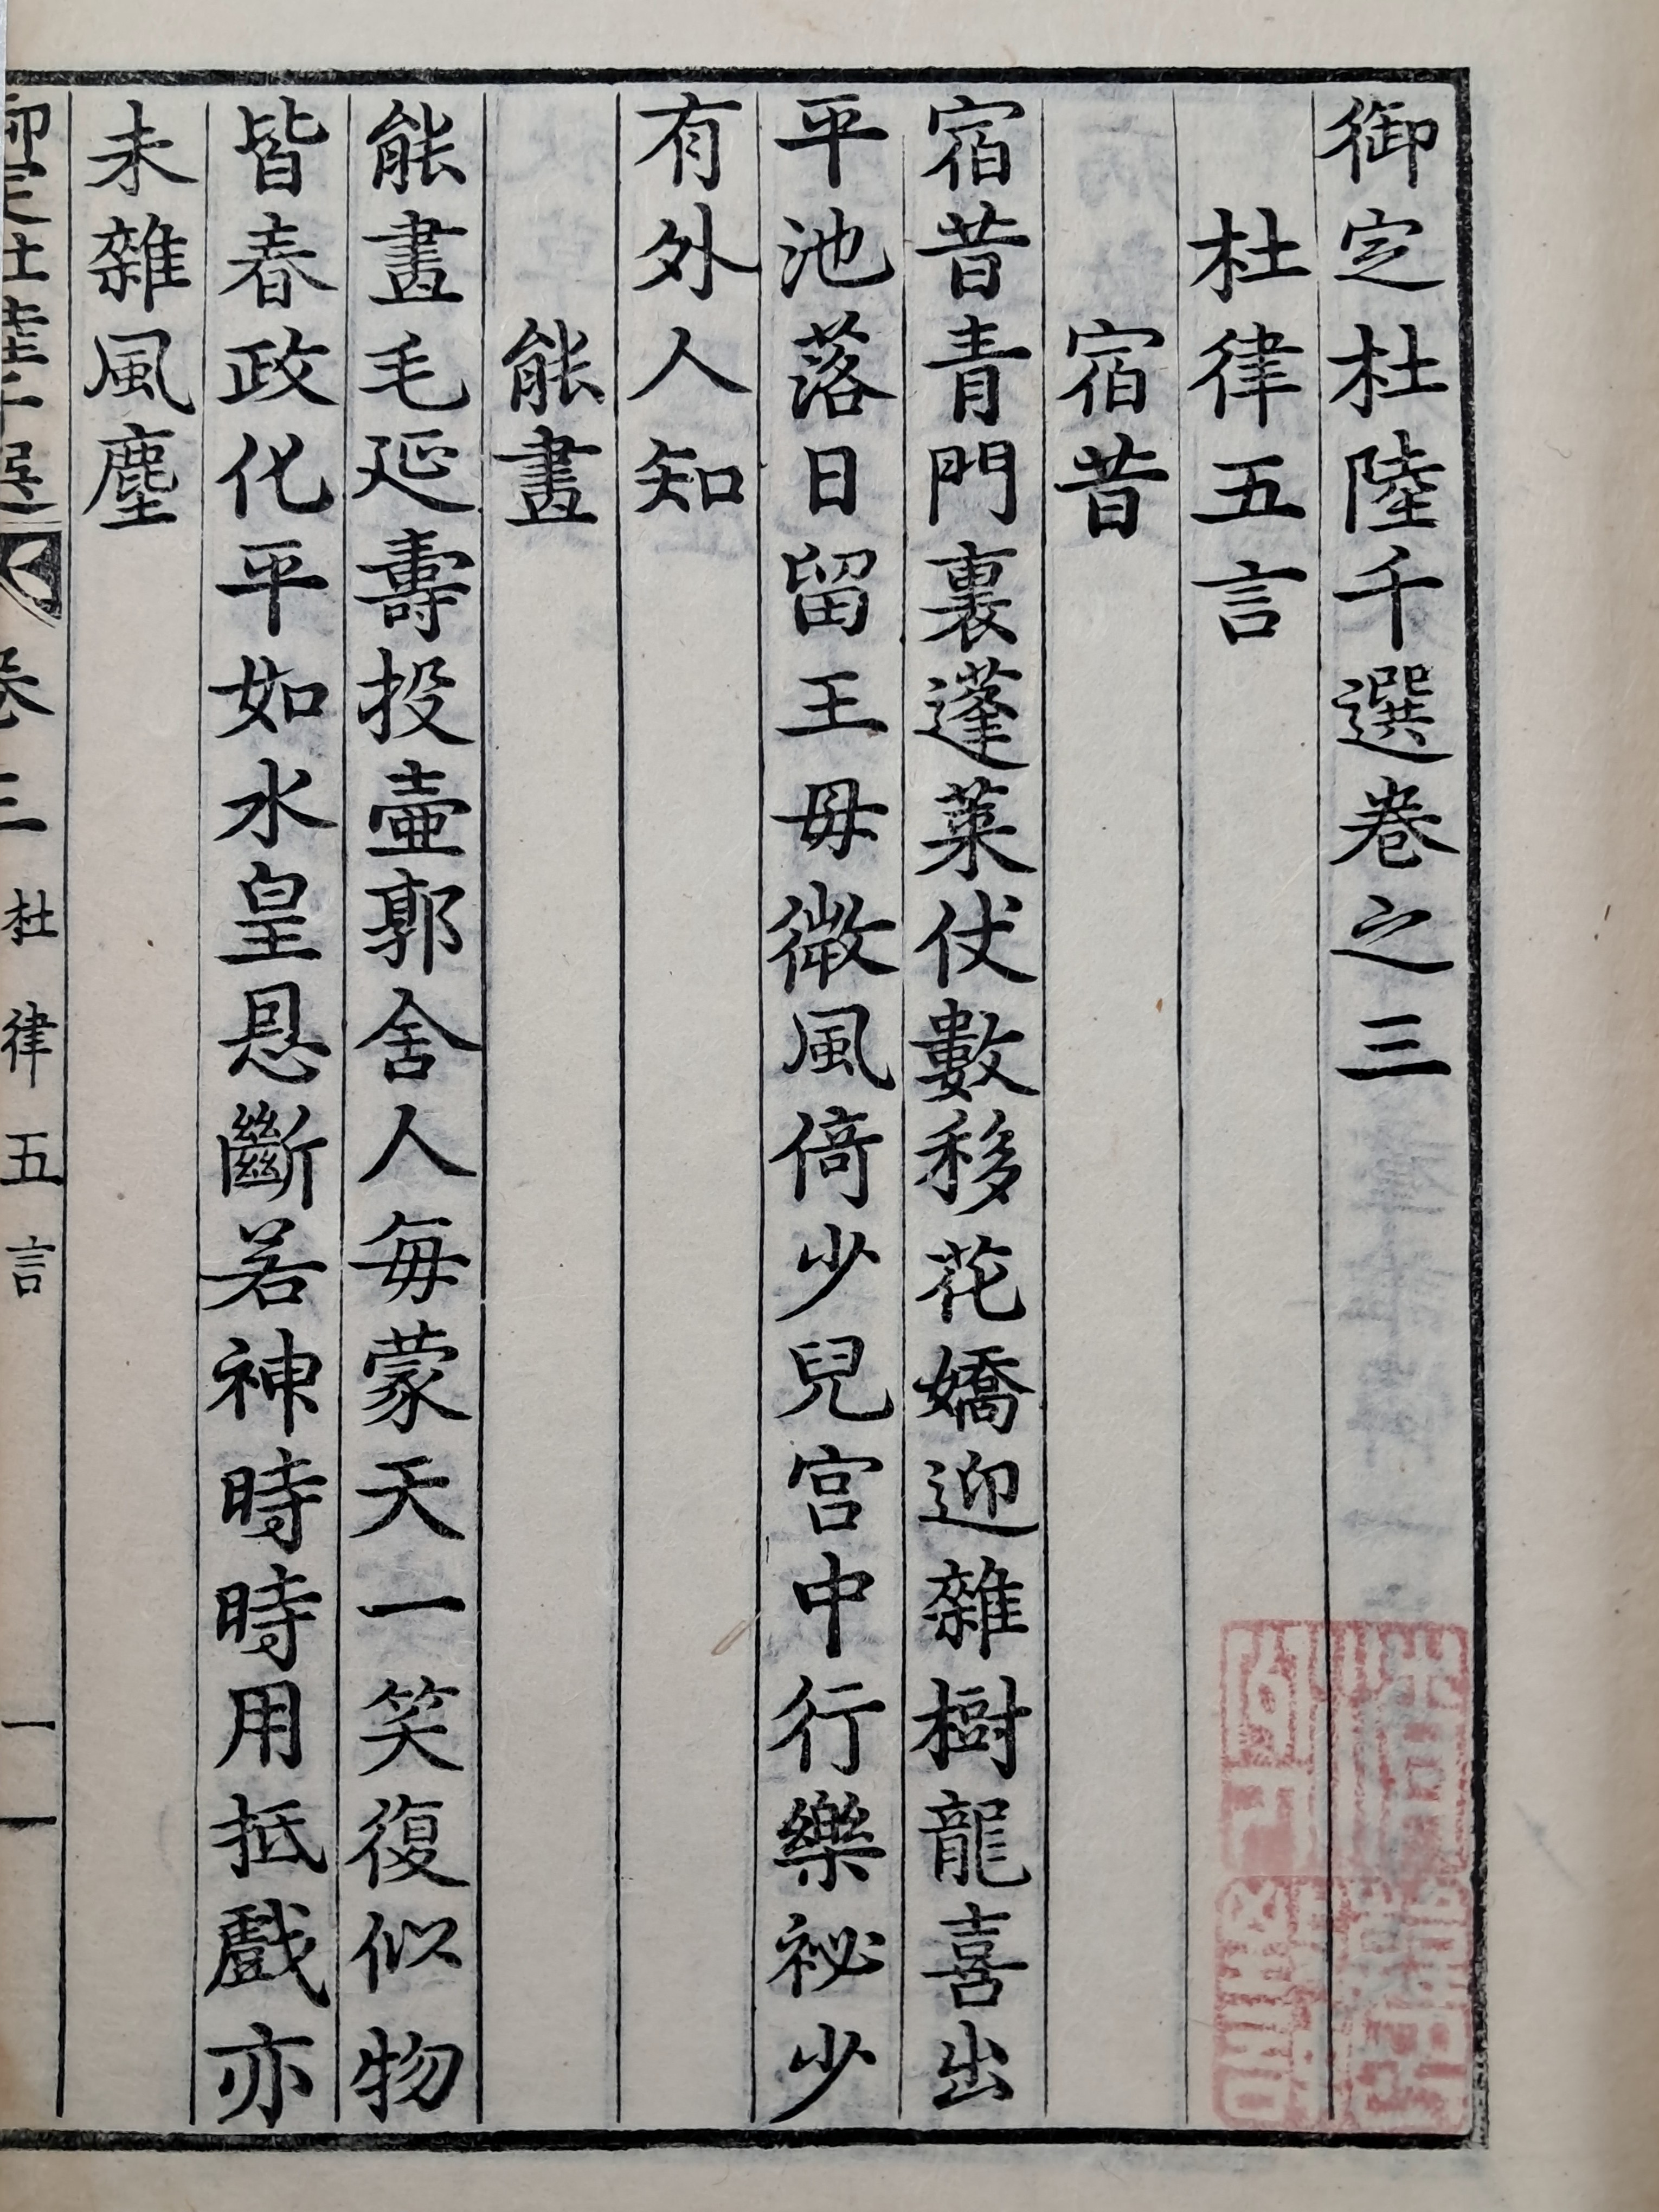 御定杜陸千選卷之三
杜律五言
宿昔
宿昔青門裏蓬萊仗數移花嬌迎雜樹龍喜出
平池落日留王母微風倚少兒宮中行樂祕少
有外人知
能畫
能畫毛延壽投壺郭舍人每蒙天一笑復似物
皆春政化平如水皇恩斷若神時時用抵戲亦
未雜風塵
卷三 杜律五言 一